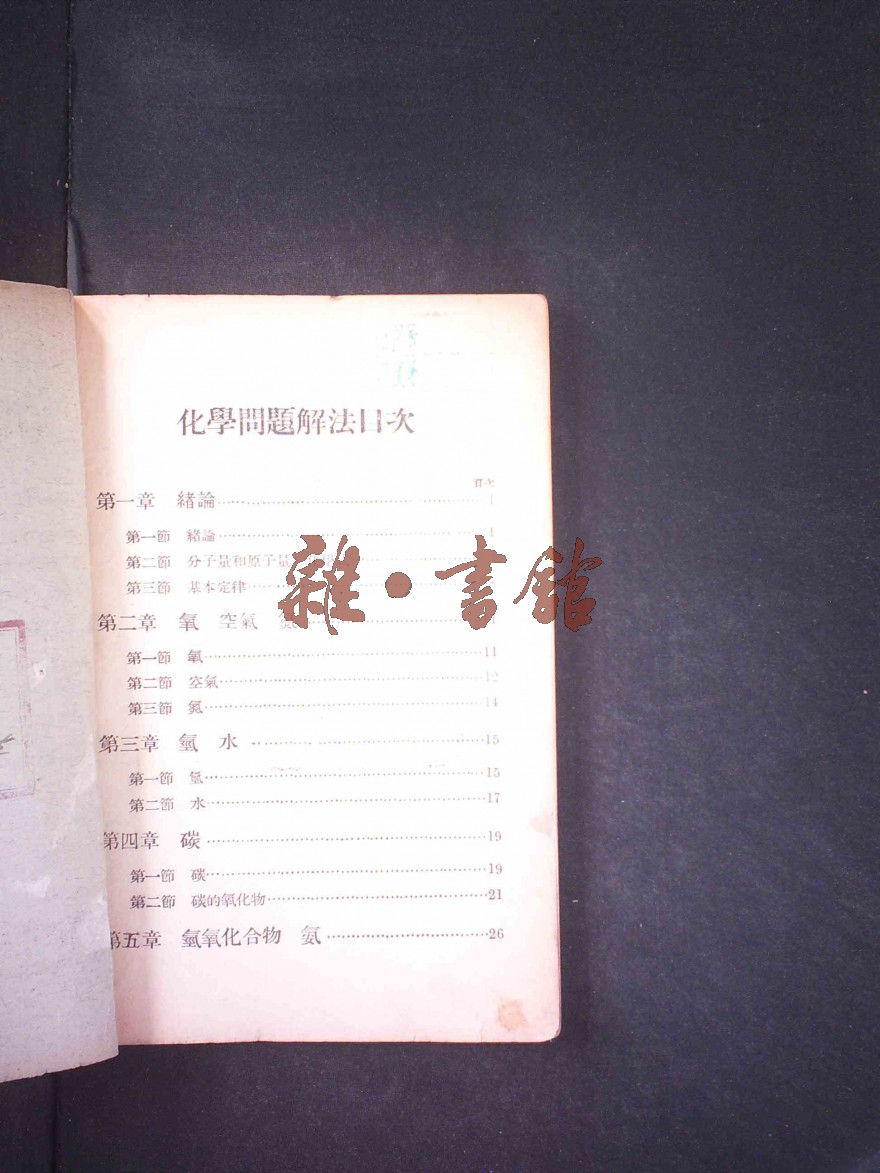 化學問題解法目次
頁次
第一章 緒論 1
第一節 緒論 1
第二節 分子量和原子量
第三節 基本定律
第二章 氧 空氣 氮
第一節 氧 11
第二節 空氣 12
第三節 氮 14
第三章 氫 水 15
第一節 氫 15
第二節 水 17
第四章 碳 19
第一節 碳 19
第二節 碳的氧化物 21
第五章 氫氧化合物 氨 26
雜·書館